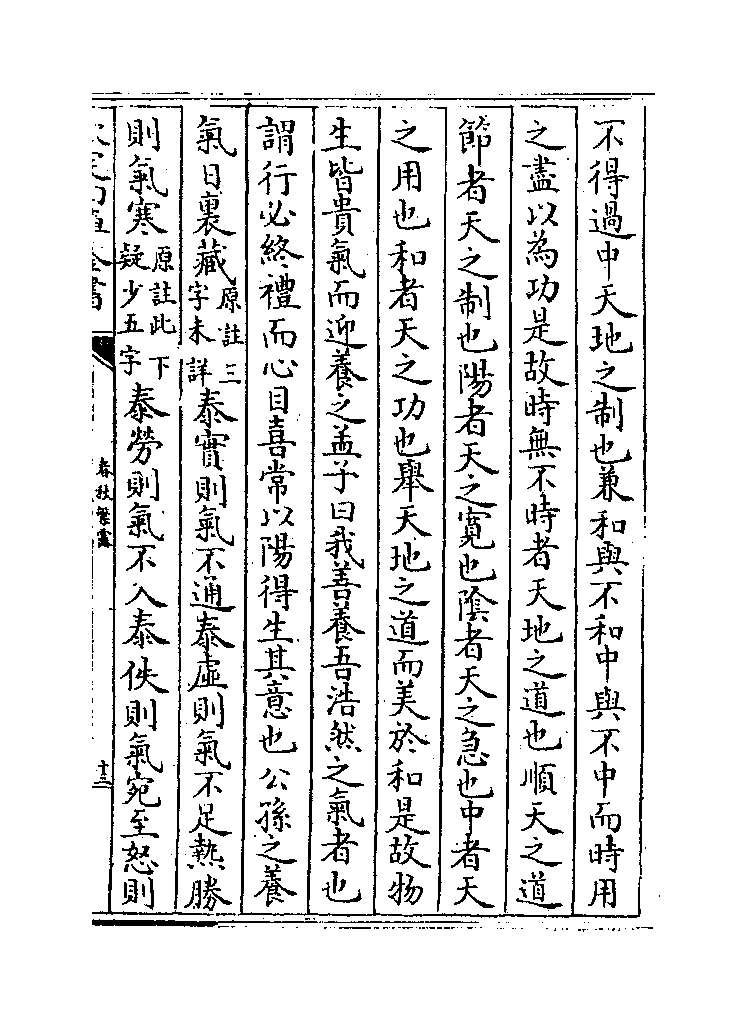 不得過中天地之制也兼和與不和中與不中而時用
之盡以為功是故時無不時者天地之道也順天之道
節者天之制也陽者天之寛也隂者天之急也中者天
之用也和者天之功也舉天地之道而美於和是故物
生皆貴氣而迎養之孟子曰我善養吾浩然之氣者也
謂行必終禮而心目喜常以陽得生其意也公孫之養
氣曰裏藏原註三字未詳泰實則氣不通泰虛則氣不足熱勝
則氣寒原註此下疑少五字泰勞則氣不入泰佚則氣宛至怒則
春秋繁露
十三